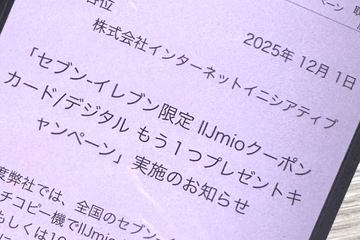 ーン 取
各位
2025年 12月 1日
株式会社インターネットイニシアティブ
「セブン‐イレブン限定 IIJmioクーポン
カード/デジタル もう１つプレゼントキ
ャンペーン」実施のお知らせ
度弊社では、全国のセブン‐
チコピー機でIIJmio
もしくは10